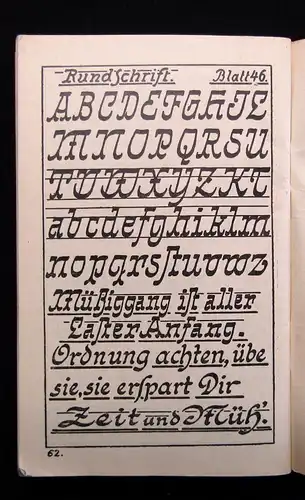 Rundschrift. Blatt 46.
ABCDEFGHIL
MNOPQRSU
TUWXYZKT
abcdefghiklm
nopqrsſtuvwz
Müßiggang iſt aller
Laſter Anfang.
Ordnung achten, übe
sie, sie erſpart Dir
Zeit und Müh'.
62.